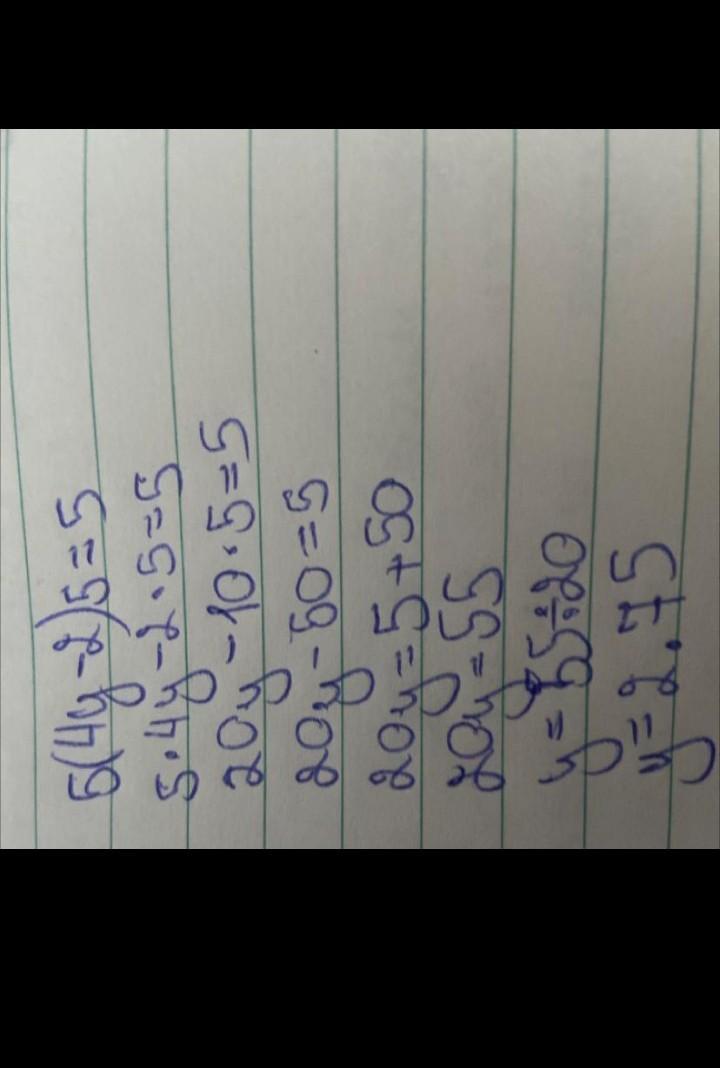 5(4y-2)5=5
5·4y-2·5=5
20y-10·5=5
20y-50=5
20y=5+50
20y=55
y=55÷20
y=2.75